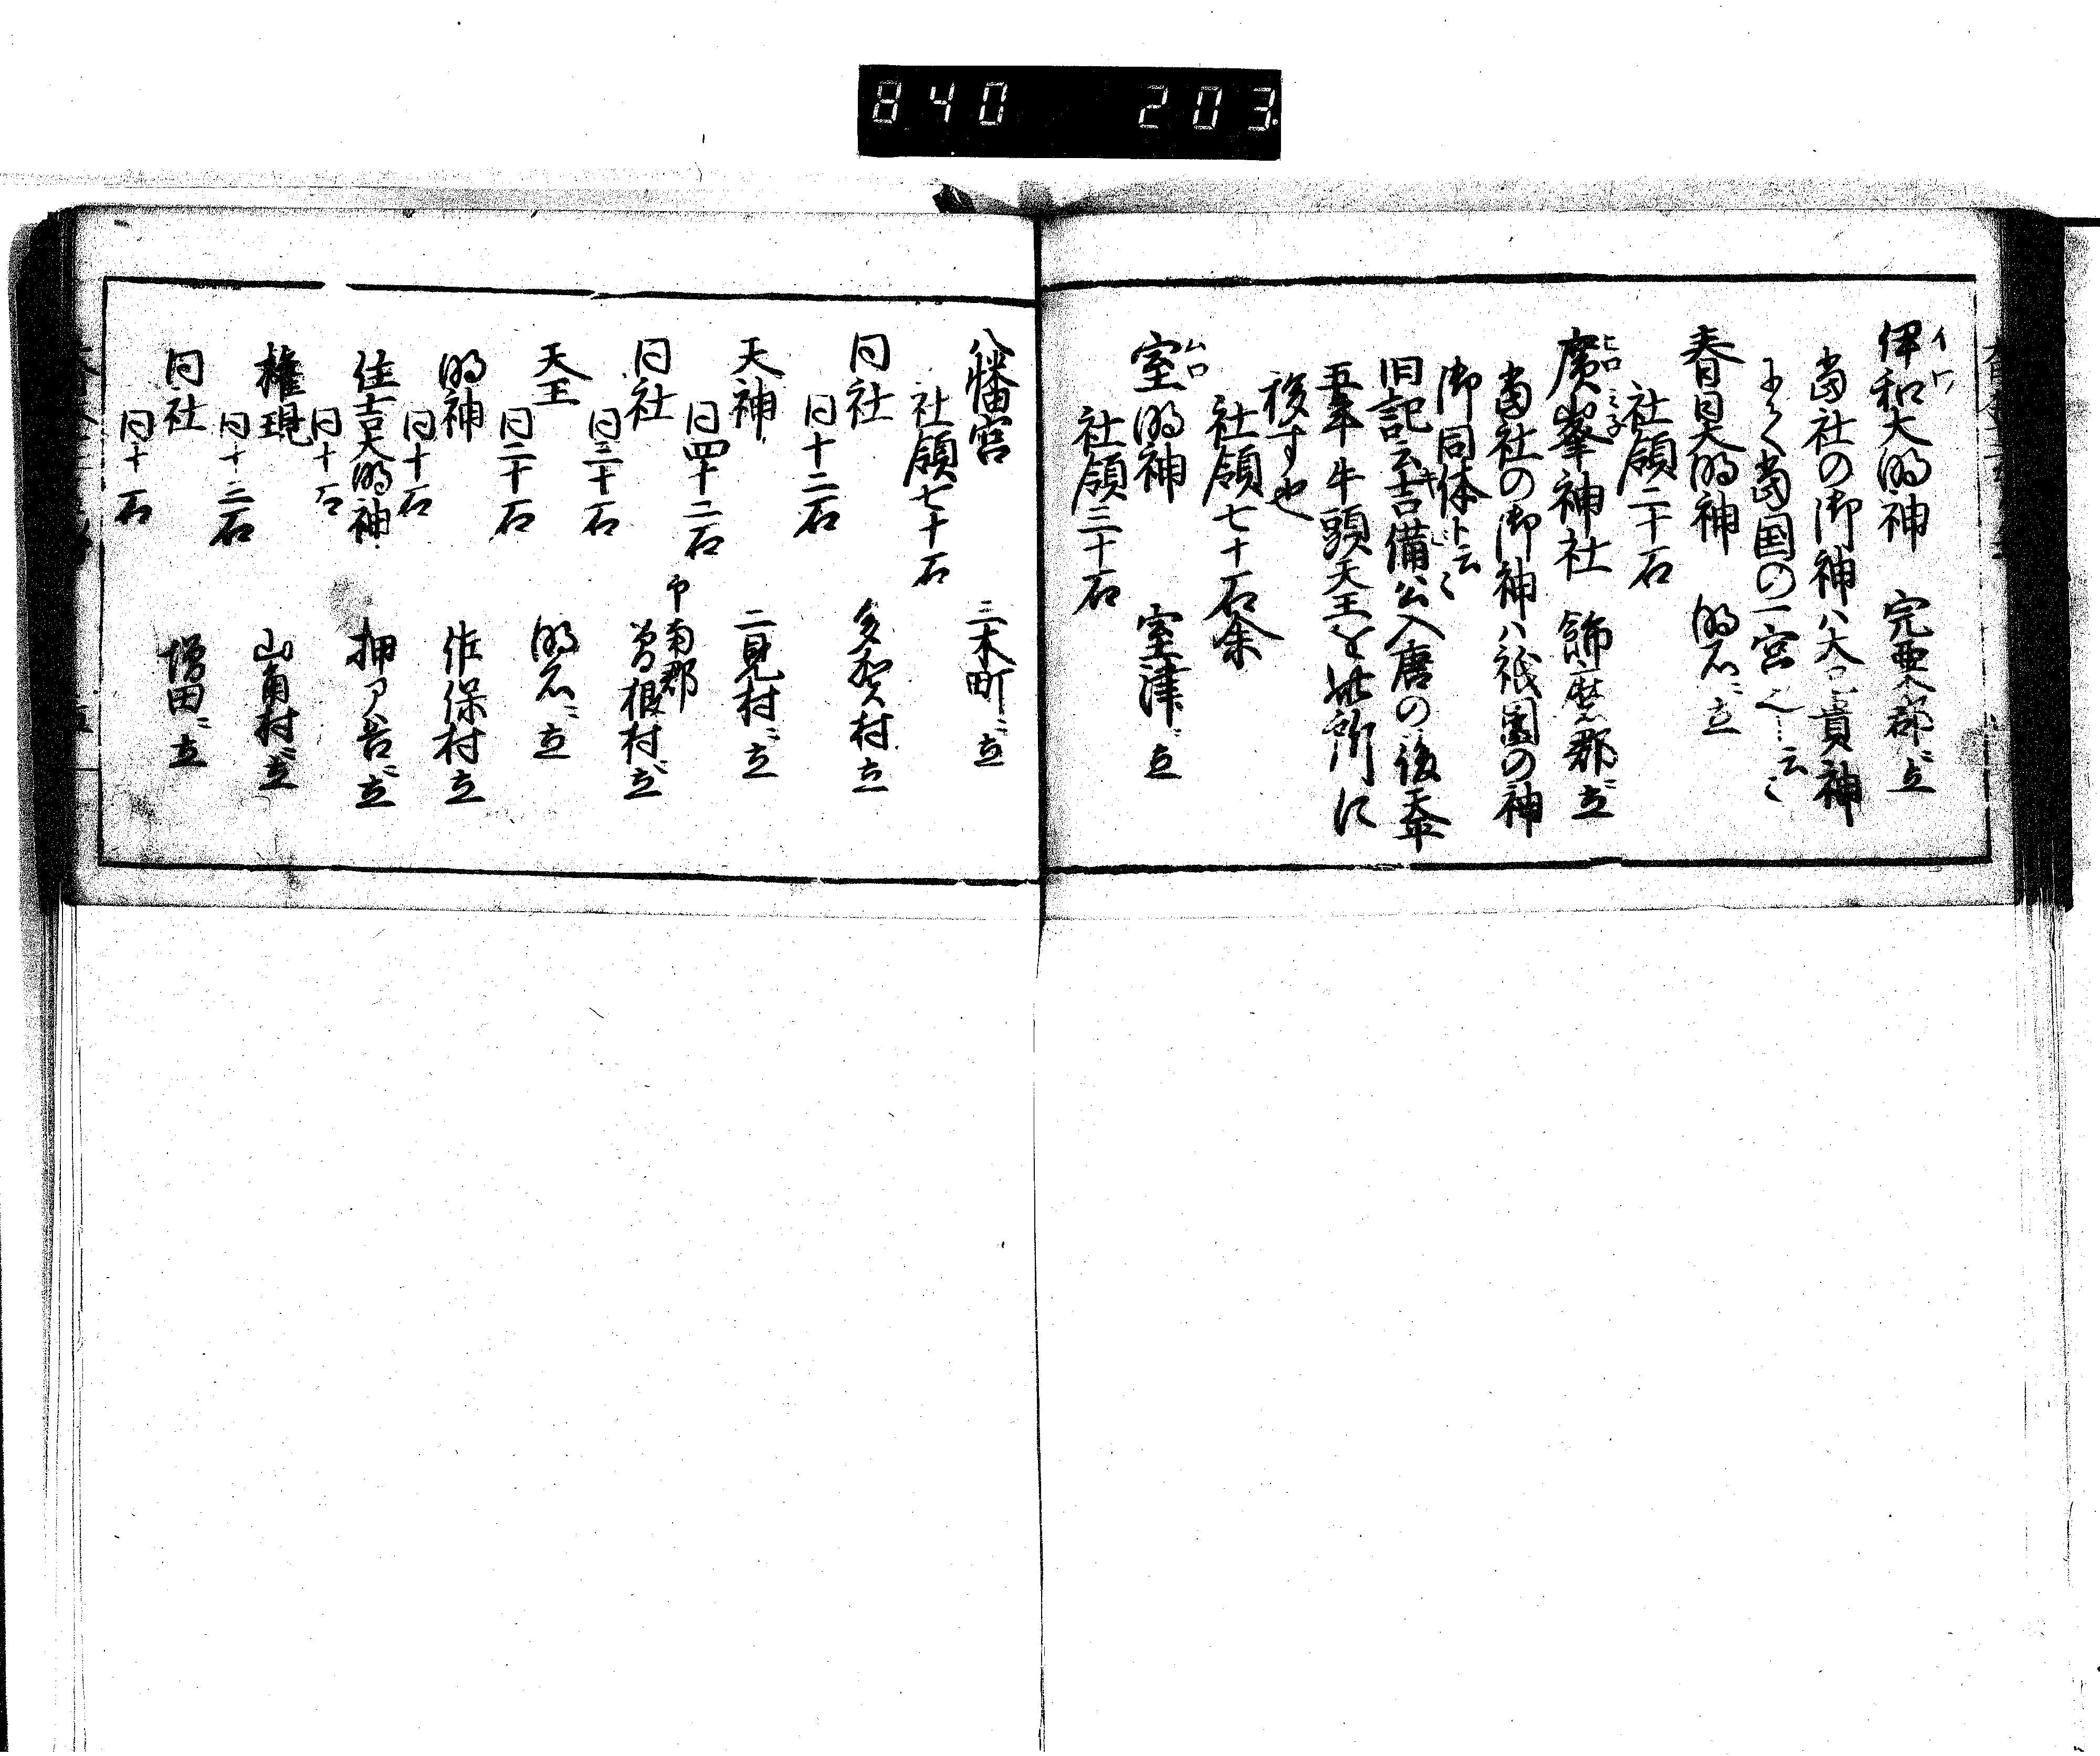 840 203
伊和大明神 完粟郡ニ立
當社の御神ハ大己貴神
まて當国の一宮 云〻
春日大明神 明石ニ立
社領二十石
廣峯神社 飾磨郡ニ立
當社の御神ハ祇園の神
御同体ト云〻
旧記云吉備公入唐の後天平
五年牛頭天王を此所に
移す也
社領七十石余
室明神 室津ニ立
社領三十石
八幡宮 三木町ニ立
社領七十石
同社 多賀村立
同十二石
天神 二見村ニ立
同四十二石
同社 印南郡曽根村ニ立
同三十石
天王 明石ニ立
同二十石
明神 佐保村立
同十石
住吉大明神 押ア谷ニ立
同十石
権現 山角村ニ立
同十二石
同社 増田ニ立
同十石